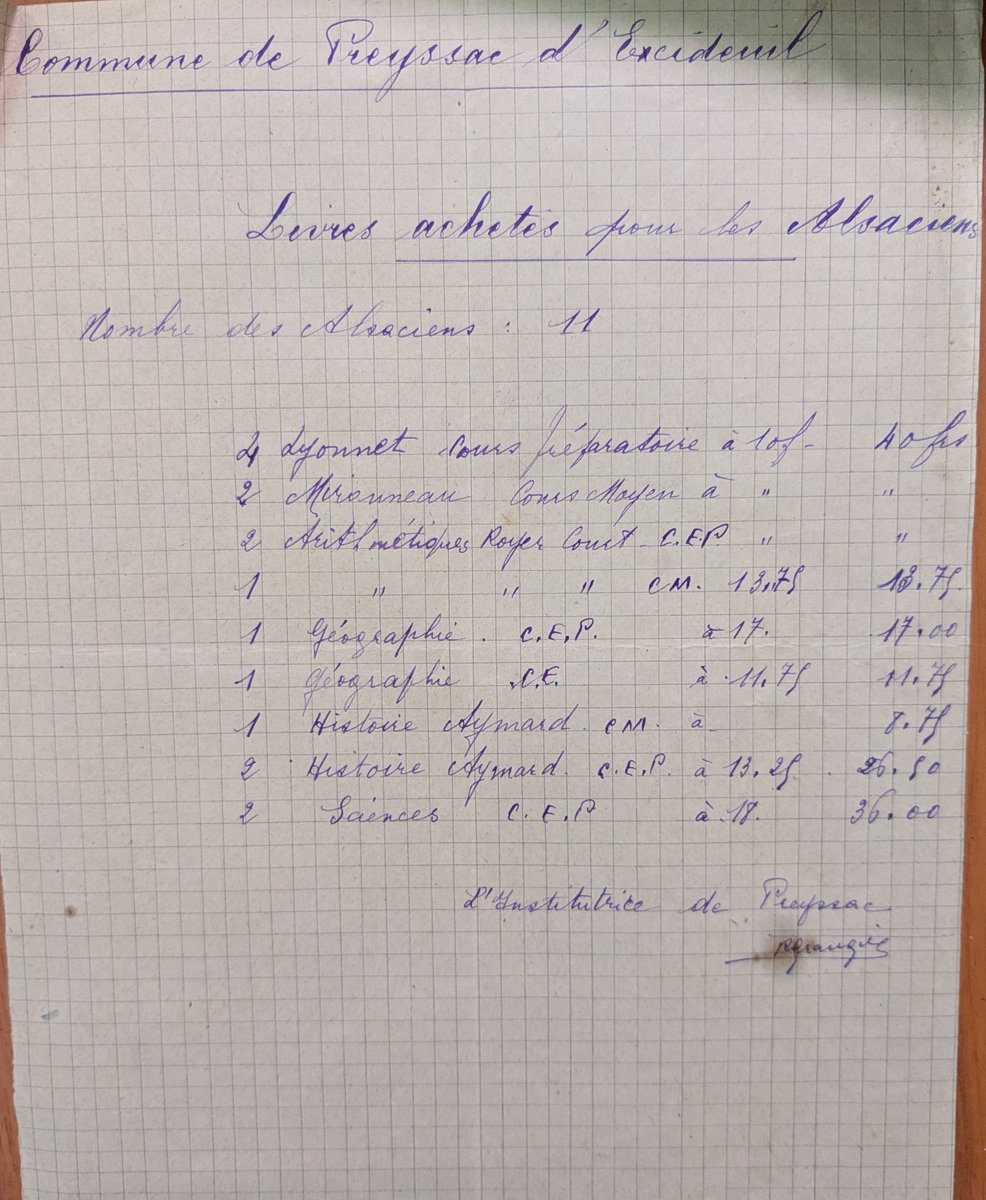 Commune de Preyssac d'Excideuil
Livres achetés pour les Alsaciens
Nombre des Alsaciens : 11
4 Lyonnet Cours prépratoire à 10f- 40 frs
2 Mironneau Cours Moyen à " "
2 Arithmétiques Royer Court - C.E.P. " "
1 " " " CM. 13,75 13.75.
1 Géographie . C.E.P. à 17. 17.00
1 Géographie C.E. à 11,75 11.75
1 Histoire Aymard . CM. à 8.75
2 Histoire Aymard . C.E.P. à 13.25 . 26.50
2 Sciences C.E.P à 18. 36.00
L'Institutrice de Preyssac